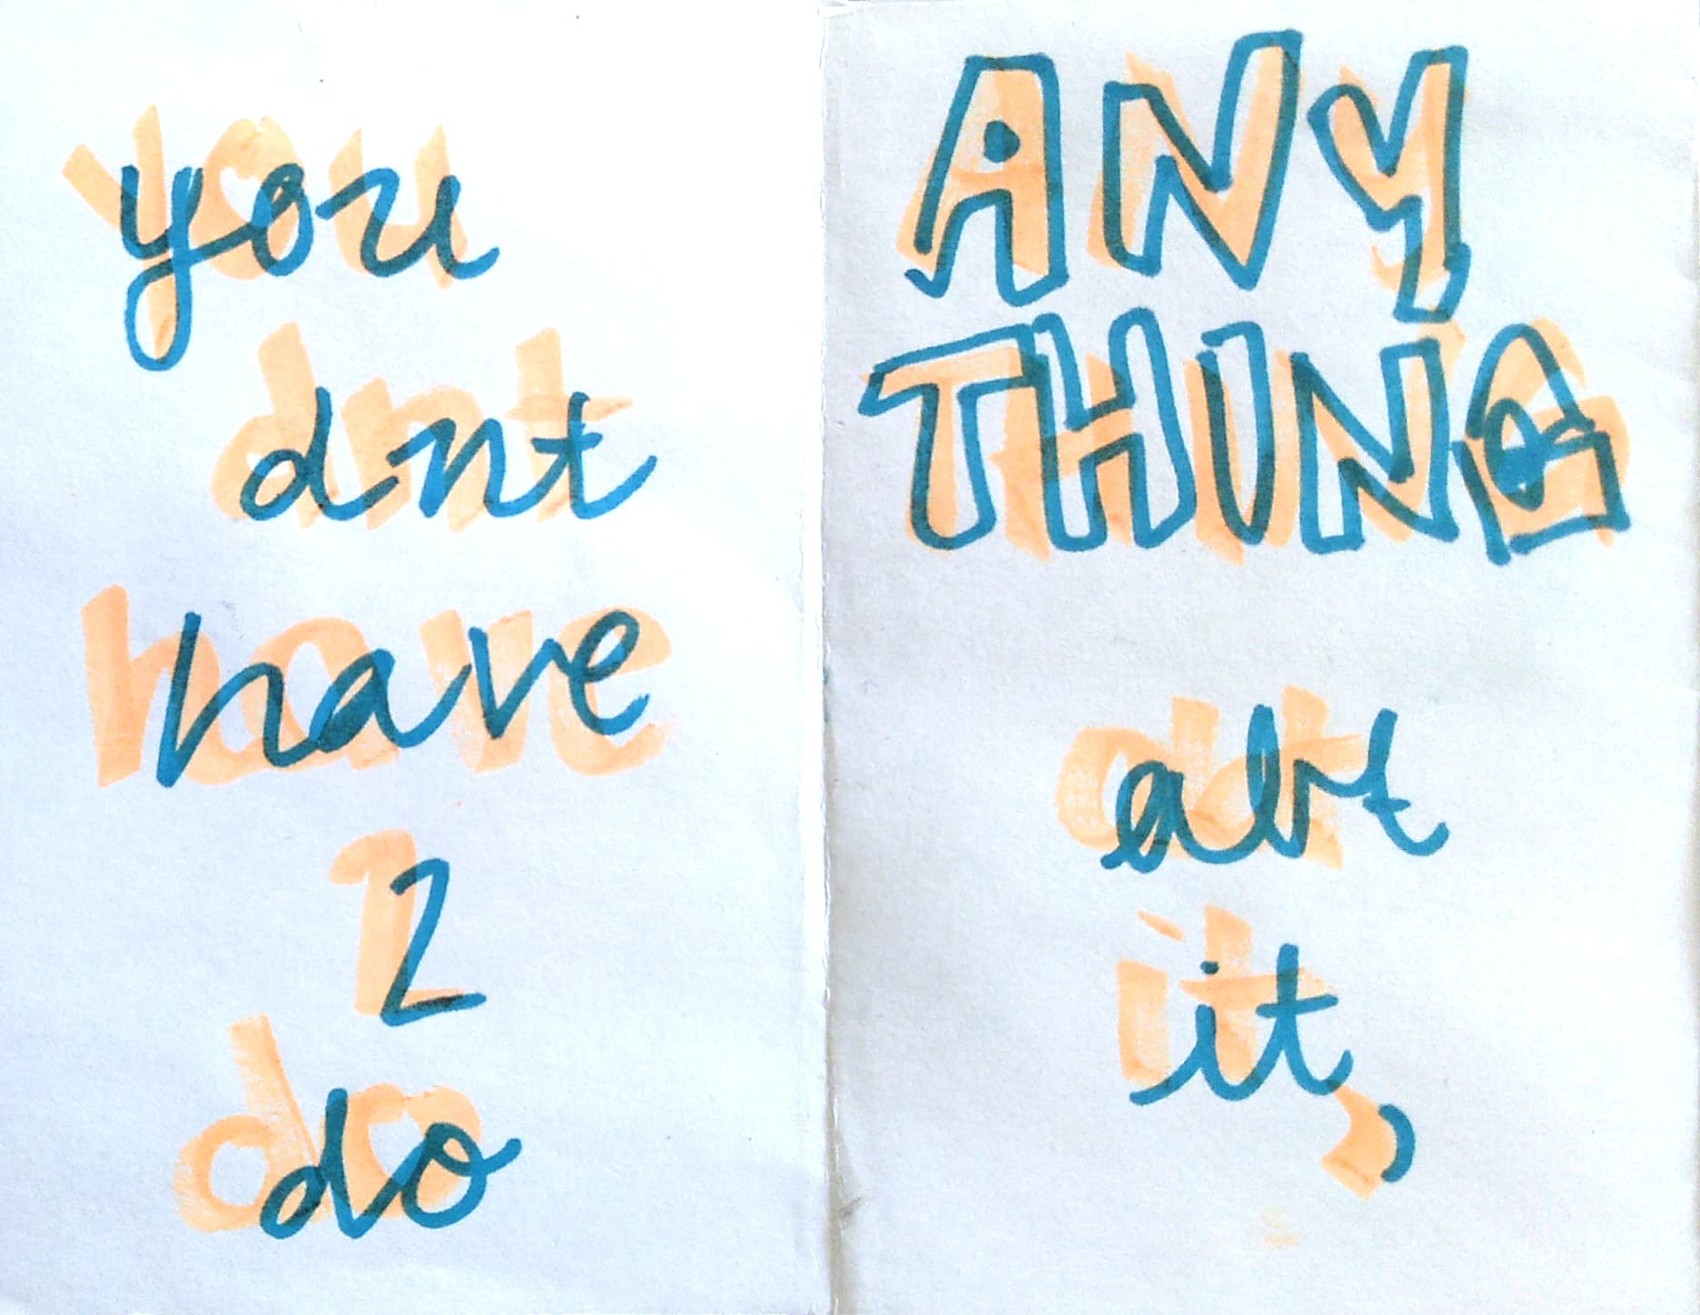 you
dnt
have
2
do
ANY
THING
abt
it,